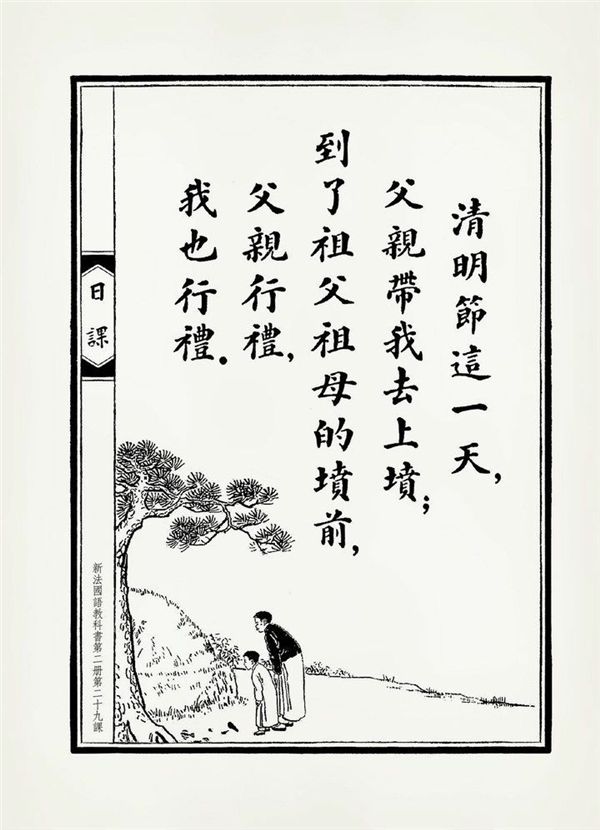 清明節這一天,
父親帶我去上墳;
到了祖父祖母的墳前,
父親行禮,
我也行禮.
日課
新法國語教科書第二册第二十九課